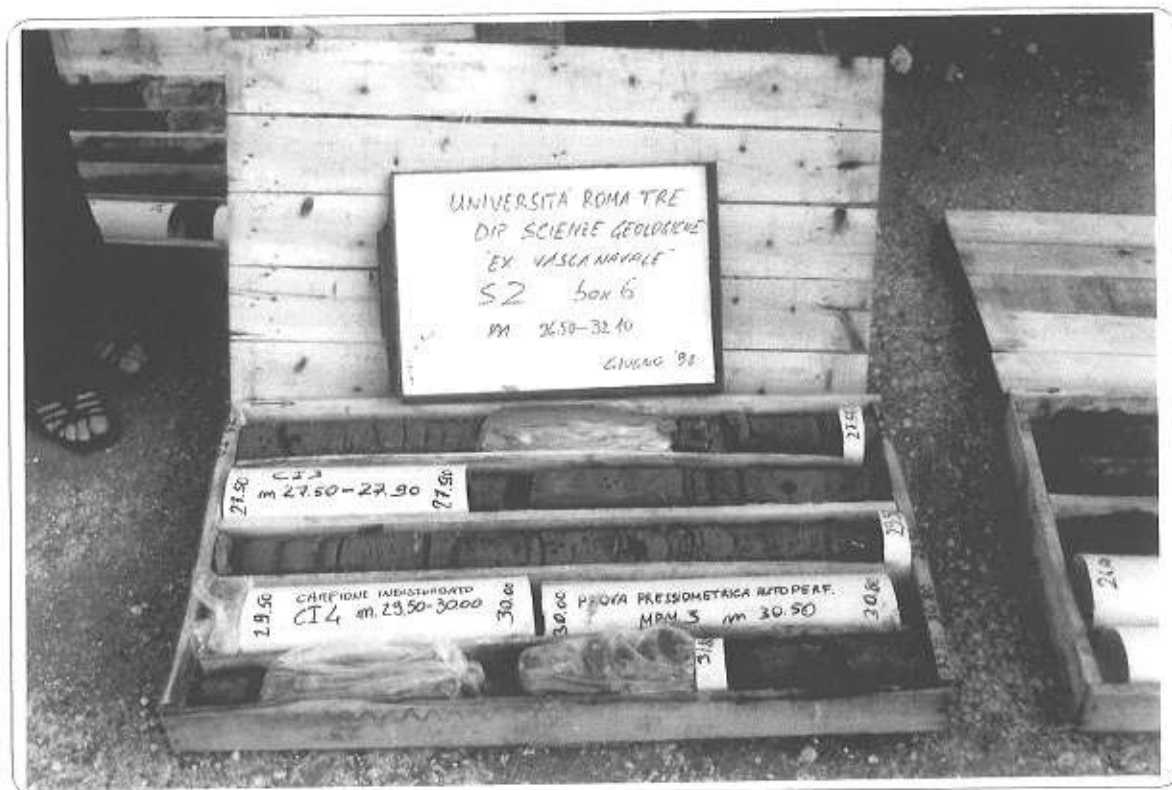 UNIVERSITÀ ROMA TRE
DIP SCIENZE GEOLOGICHE
EX VASCA NAVALE
S2 box 6
m 26.50-32.10
GIUGNO
27.50
27.50
CI3
m 27.50-27.90
27.90
29.50
CAMPIONE INDISTURBATO
CI4 m. 29.50-30.00
30.00
30.00
PROVA PRESSIOMETRICA AUTOPERF.
MPM 3 m 30.50
30.80